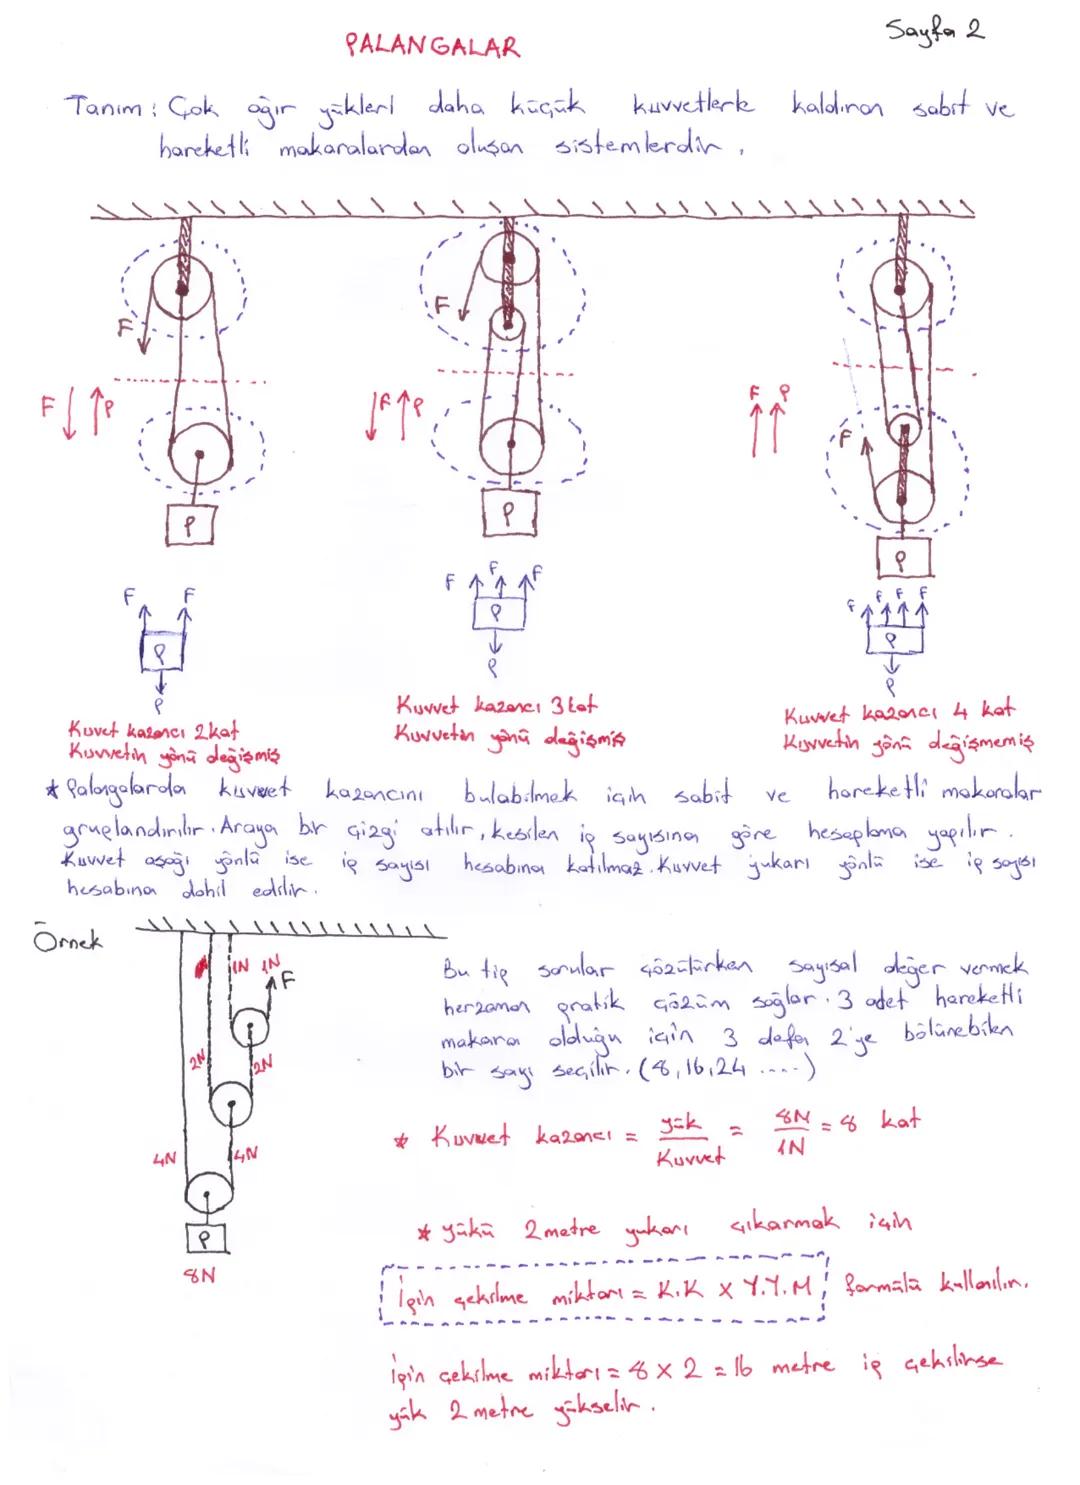 Sayfa 2
PALANGALAR
Tanım: Çok ağır yükleri daha küçük kuvvetlerle kaldıran sabit ve
hareketli makaralardan oluşan sistemlerdir.
F
F
F P
F P
F P
F
P
P
P
F F
F F F
F F F F
P
P
P
P
P
P
Kuvet kazancı 2 kat
Kuvvetin yönü değişmiş
Kuvvet kazancı 3 kat
Kuvvetin yönü değişmiş
Kuvvet kazancı 4 kat
Kuvvetin yönü değişmemiş
* Palangalarda kuvvet kazancını bulabilmek için sabit ve hareketli makaralar
gruplandırılır. Araya bir çizgi atılır, kesilen ip sayısına göre hesaplama yapılır.
Kuvvet aşağı yönlü ise ip sayısı hesabına katılmaz. Kuvvet yukarı yönlü ise ip sayısı
hesabına dahil edilir.
Örnek
1N 1N
F
2N 2N
4N 4N
P
8N
Bu tip sorular çözülürken sayısal değer vermek
herzaman pratik çözüm sağlar. 3 adet hareketli
makara olduğu için 3 defa 2'ye bölünebilen
bir sayı seçilir. (8,16,24 ....)
* Kuvvet kazancı = yük / Kuvvet = 8N / 1N = 8 kat
* yükü 2 metre yukarı çıkarmak için
İpin çekilme miktarı = K.K x Y.Y.M formülü kullanılır.
İpin çekilme miktarı = 8 x 2 = 16 metre ip çekilirse
yük 2 metre yükselir.